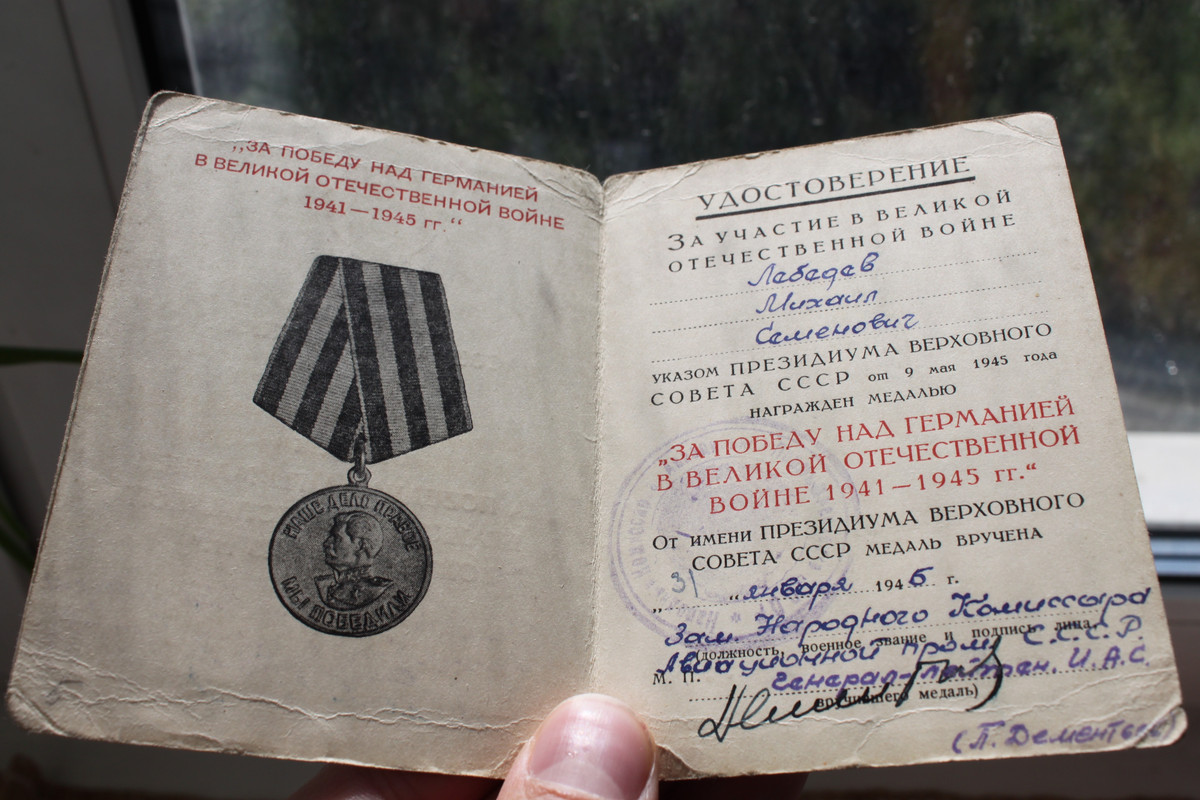 „ЗА ПОБЕДУ НАД ГЕРМАНИЕЙ
В ВЕЛИКОЙ ОТЕЧЕСТВЕННОЙ ВОЙНЕ
1941—1945 гг.“
НАШЕ ДЕЛО ПРАВОЕ
МЫ ПОБЕДИЛИ
УДОСТОВЕРЕНИЕ
ЗА УЧАСТИЕ В ВЕЛИКОЙ
ОТЕЧЕСТВЕННОЙ ВОЙНЕ
Лебедев
Михаил
Семенович
УКАЗОМ ПРЕЗИДИУМА ВЕРХОВНОГО
СОВЕТА СССР от 9 мая 1945 года
НАГРАЖДЕН МЕДАЛЬЮ
„ЗА ПОБЕДУ НАД ГЕРМАНИЕЙ
В ВЕЛИКОЙ ОТЕЧЕСТВЕННОЙ
ВОЙНЕ 1941—1945 гг.“
От имени ПРЕЗИДИУМА ВЕРХОВНОГО
СОВЕТА СССР МЕДАЛЬ ВРУЧЕНА
„31“ января 1946 г.
Зам. Народного Комиссара
(должность, военное звание и подпись лица,
Авиационной пром. С.С.С.Р.
М. П. генерал-лейтен. И.А.С.
вручившего медаль)
(П. Дементьев)